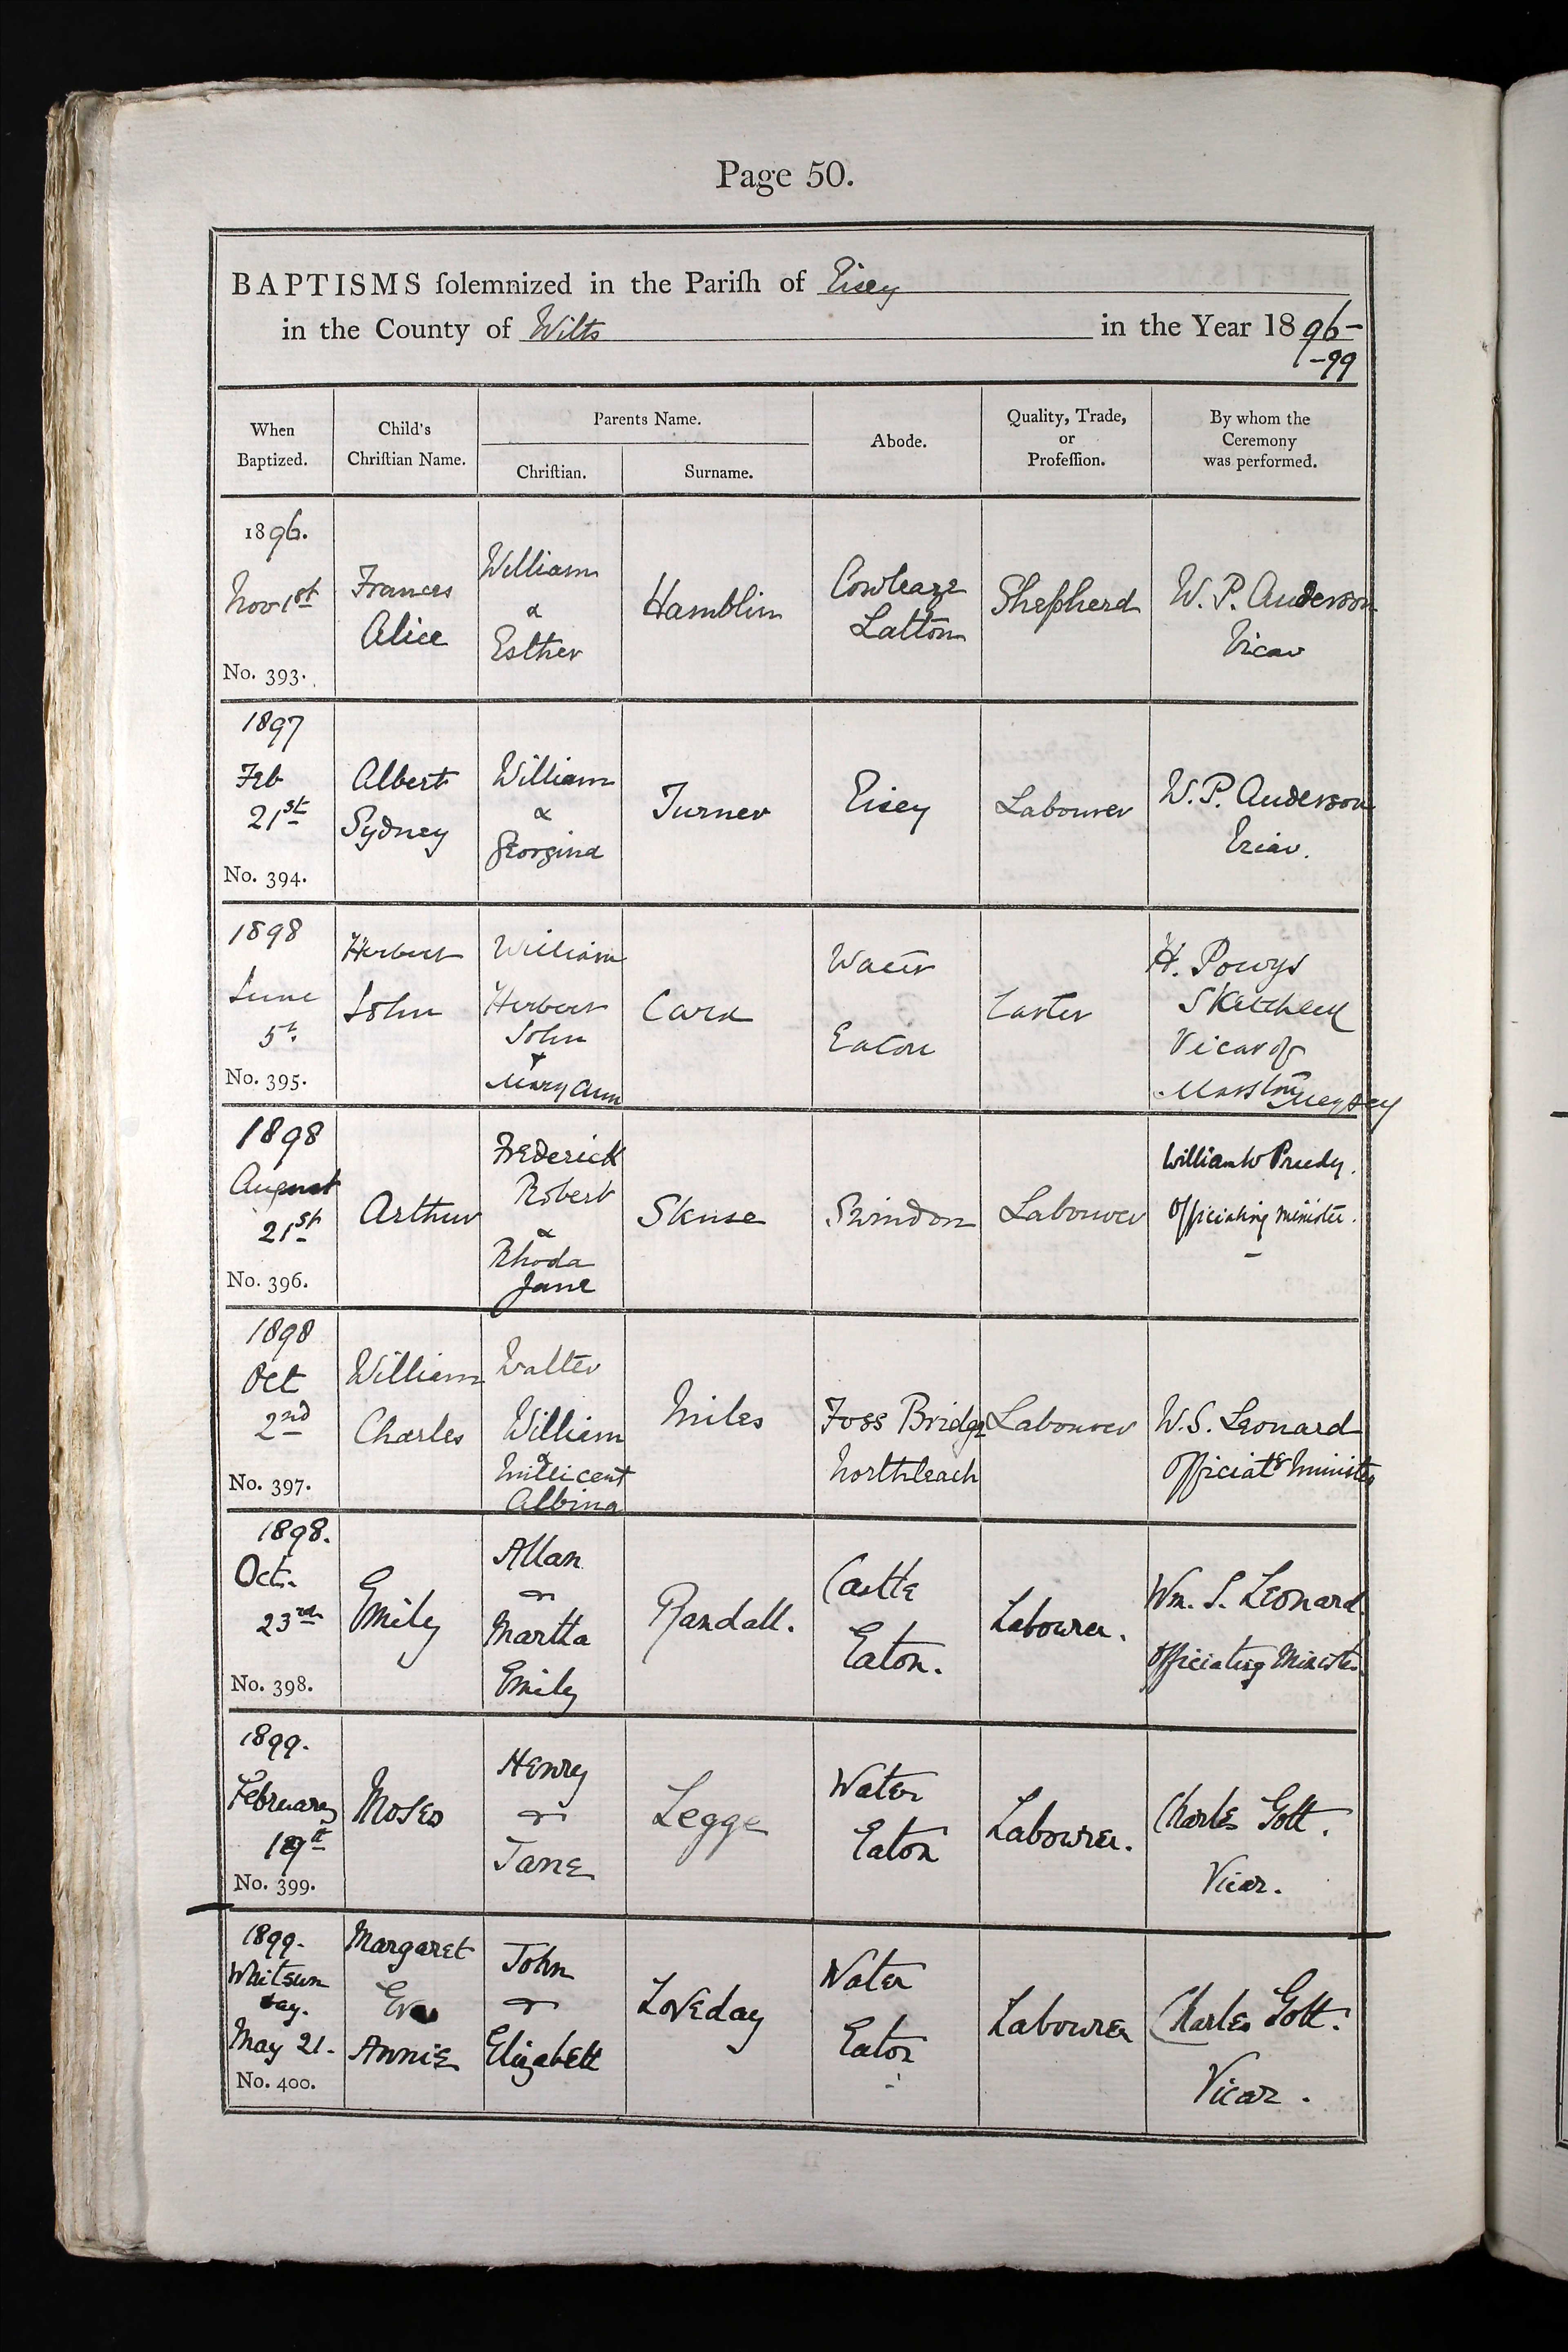 Page 50.
BAPTISMS ſolemnized in the Pariſh of Eisey
in the County of Wilts in the Year 18 96-
-99
When Baptized. Child's Chriſtian Name. Parents Name. Chriſtian. Surname. Abode. Quality, Trade, or Profeſſion. By whom the Ceremony was performed.
1896.
Nov 1st
No. 393.
Frances
Alice
William
&
Esther
Hamblin
Cowleaze
Latton
Shepherd
W. P. Anderson
Vicar
1897
Feb
21st
No. 394.
Albert
Sydney
William
&
Georgina
Turner
Eisey
Labourer
W. P. Anderson
Vicar.
1898
June
5th
No. 395.
Herbert
John
William
Herbert
John
+
Mary Ann
Water
Eaton
Carter
H. Powys
Sketchley
Vicar of
Marston Meysey
1898
August
21st
No. 396.
Arthur
Frederick
Robert
&
Rhoda
Jane
Skuse
Swindon
Labourer
William W Preedy.
Officiating Minister.
1898
Oct
2nd
No. 397.
William
Charles
Walter
William
&
Millicent
Albina
Miles
Foss Bridge
Northleach
Labourer
W. S. Leonard
Officiatg Minister
1898.
Oct.
23rd
No. 398.
Emily
Allan
&
Martha
Emily
Randall.
Castle
Eaton.
Labourer.
Wm. S. Leonard.
Officiating Minister.
1899.
February
19th
No. 399.
Moses
Henry
&
Jane
Legge
Water
Eaton
Labourer.
Charles Gott.
Vicar.
1899.
Whitsun
day.
May 21.
No. 400.
Margaret
Eva
Annie
John
&
Elizabeth
Loveday
Water
Eaton
Labourer
Charles Gott.
Vicar.